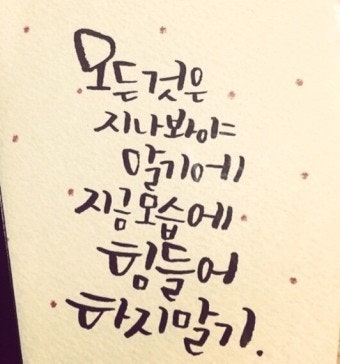 모든것은
지나봐야
말기에
지금모습에
힘들어
하지말기.